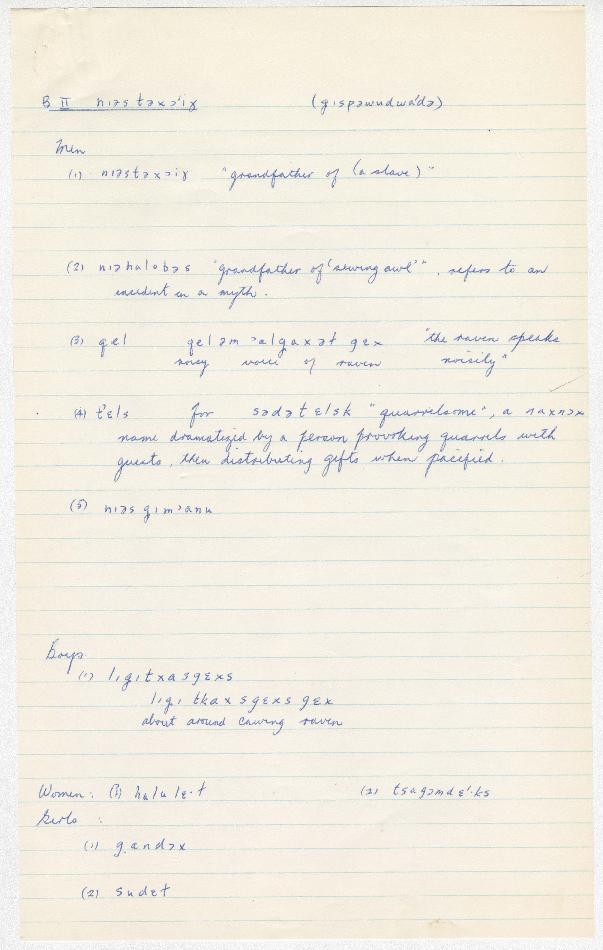 B II nıəs təxɔ'ıɣ (gıspəwudwa'də)
Men
(1) nıəstəxɔiɣ "grandfather of (a slave)"
(2) nıəhalobəs "grandfather of 'sewing awl'", refers to an
incident in a myth.
(3) qɛl qɛləm ɔalgaxət gɛx "the raven speaks
noisy voice of raven noisily"
(4) t'ɛls for sədətɛlsk "quarrelsome", a naxnɔx
name dramatized by a person provoking quarrels with
guests, then distributing gifts when pacified.
(5) nıəs gım'anu
Boys
(1) lıgıtxasgɛxs
lıgı tkax sgɛxs gɛx
about around cawing raven
Women: (1) halulɛ·t (2) tsagəmdɛ'·ks
Girls :
(1) g.andəx
(2) sudɛt